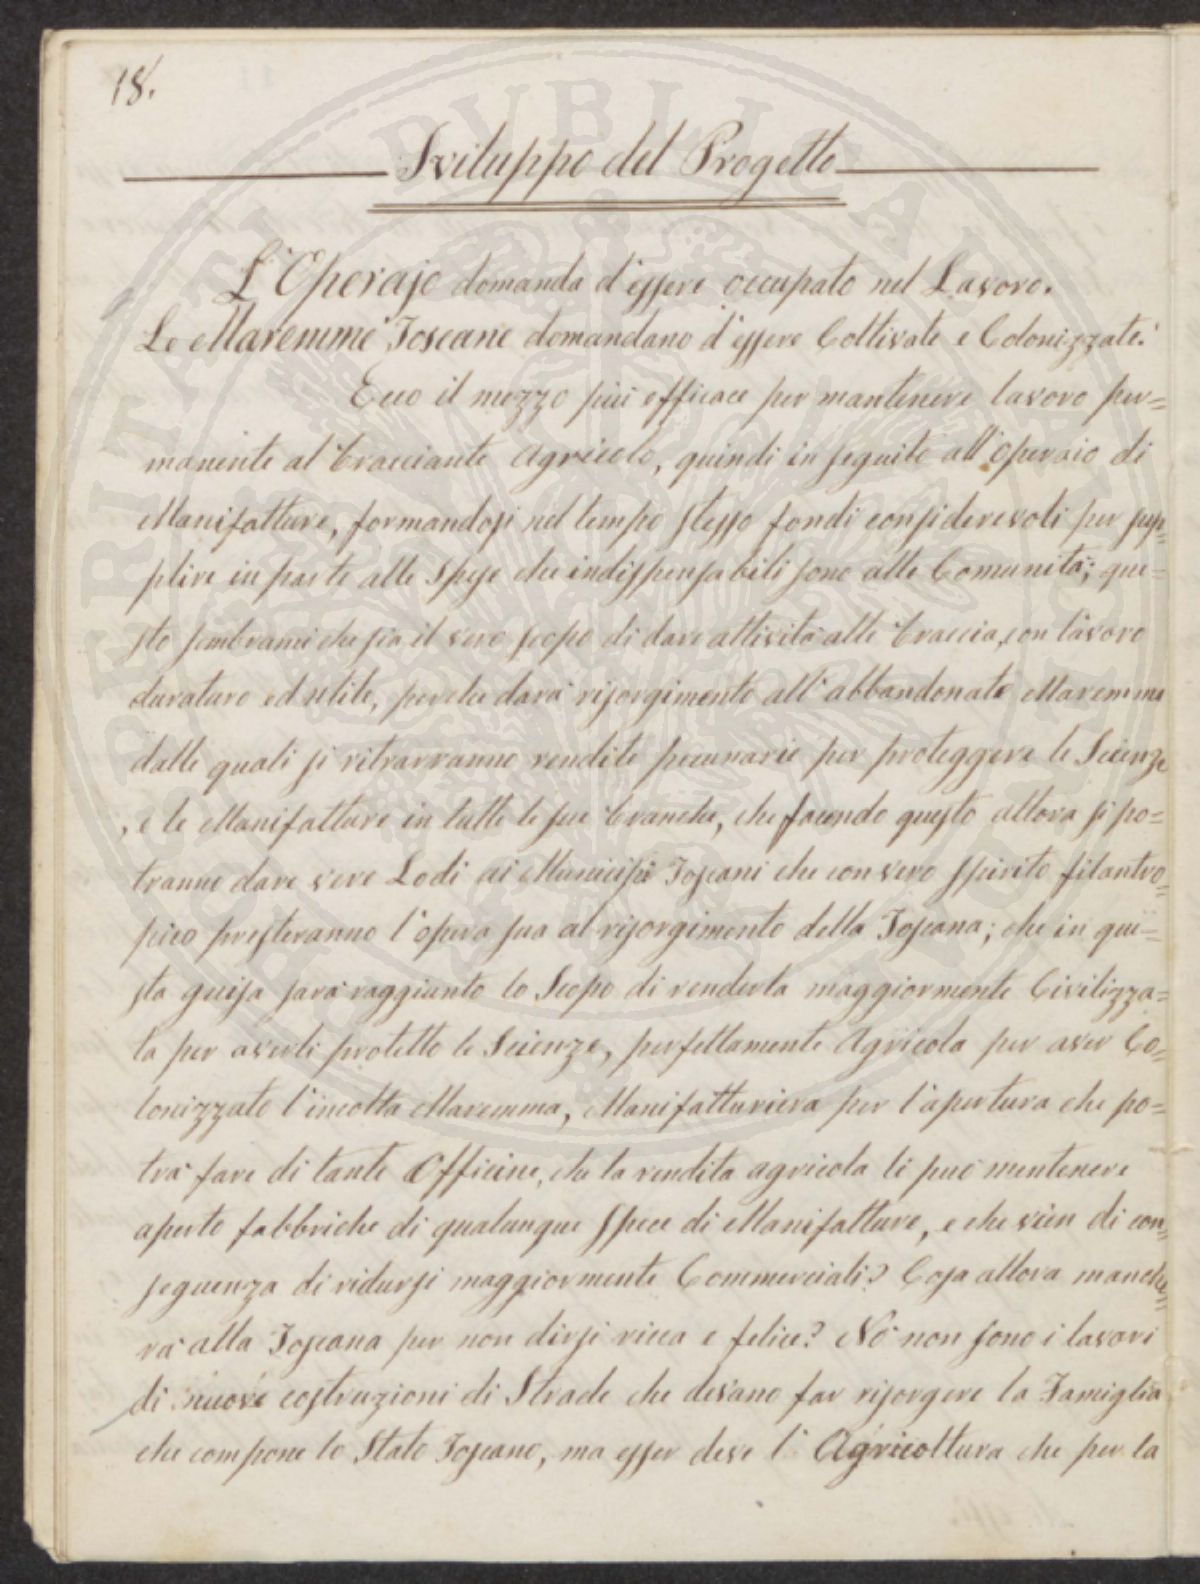 18.
Sviluppo del Progetto
L'Operajo domanda d'essere occupato nel Lavoro.
Le Maremme Toscane domandano d'essere Coltivate e Colonizzate.
Ecco il mezzo più efficace per mantenere lavoro per=
manente al bracciante agricolo, quindi in seguito all'operaio di
Manifatture, formandosi nel tempo stesso fondi considerevoli per sup=
plire in parte alle Spese che indispensabili sono alle Comunità; que=
sto sembrami che sia il vero scopo di dare attività alle braccia, con lavoro
duraturo ed utile, perche darà risorgimento all'abbandonate Maremme
dalle quali si ritrarranno rendite pecunarie per proteggere le Scienze
, e le Manifatture in tutte le sue branche, che facendo questo allora si po=
tranno dare vere Lodi ai Municipi Toscani che con vero spirito filantro=
pico presteranno l'opera sua al risorgimento della Toscana; che in que=
sta guisa sarà raggiunto lo Scopo di renderla maggiormente Civilizza=
ta per averli protetto le Scienze, perfettamente Agricola per aver Co=
lonizzato l'incolta Maremma, Manifatturiera per l'apertura che po=
trà fare di tante Officine, che la rendita agricola li può mentenere
aperte fabbriche di qualunque spece di Manifatture, e che vien di con=
seguenza di ridursi maggiormente Commerciali? Cosa allora manche=
rà alla Toscana per non dirsi ricca e felice? Nò non sono i lavori
di nuove costruzioni di Strade che devano far risorgere la Famiglia
che compone lo Stato Toscano, ma esser deve l'Agricoltura che per la